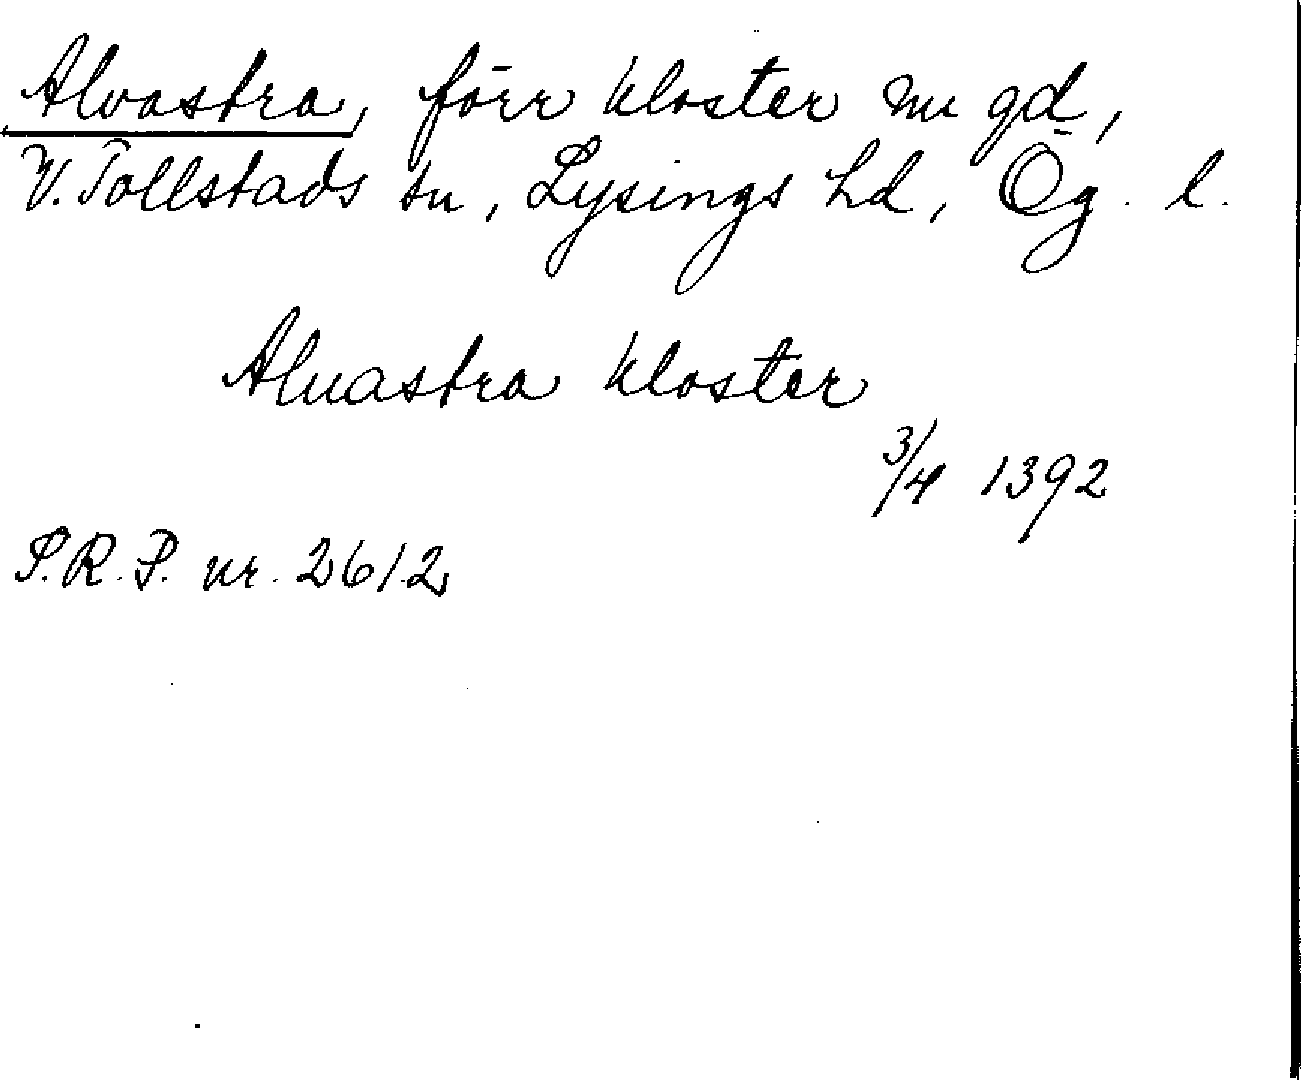 Alvastra, förr kloster nu gd,
V. Tollstads sn, Lysings hd, Ög. l.
Aluastra kloster
3/4 1392
S.R.P. nr. 2612